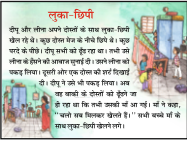 लुका-छिपी
दीपू और लीना अपने दोस्तों के साथ लुका-छिपी
खेल रहे थे। कुछ दोस्त मेज के नीचे छिपे थे। कुछ
परदे के पीछे। दीपू सभी को ढूँढ रहा था। तभी उसे
लीना के हँसने की आवाज सुनाई दी। उसने लीना को
पकड़ लिया। दूसरी ओर एक दोस्त की शर्ट दिखाई
दी। दीपू ने उसे भी पकड़ लिया। अब
वह बाकी के दोस्तों को ढूँढने जा
ही रहा था कि तभी उसकी माँ आ गईं। माँ ने कहा,
"चलो सब मिलकर खेलते हैं।" सभी बच्चे माँ के
साथ लुका-छिपी खेलने लगे।